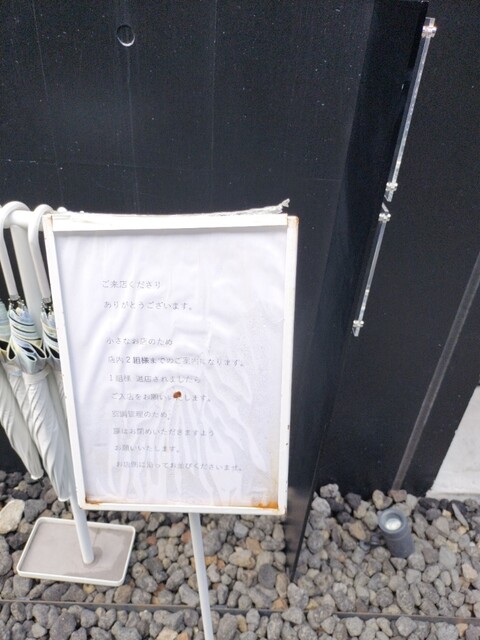 ご来店くださり
ありがとうございます。
小さなお店のため
店内2組様までのご案内になります。
1組様 退店されましたら
ご入店をお願いいたします。
空調管理のため、
扉はお閉めいただきますよう
お願いいたします。
お店側に沿ってお並びくださいませ。